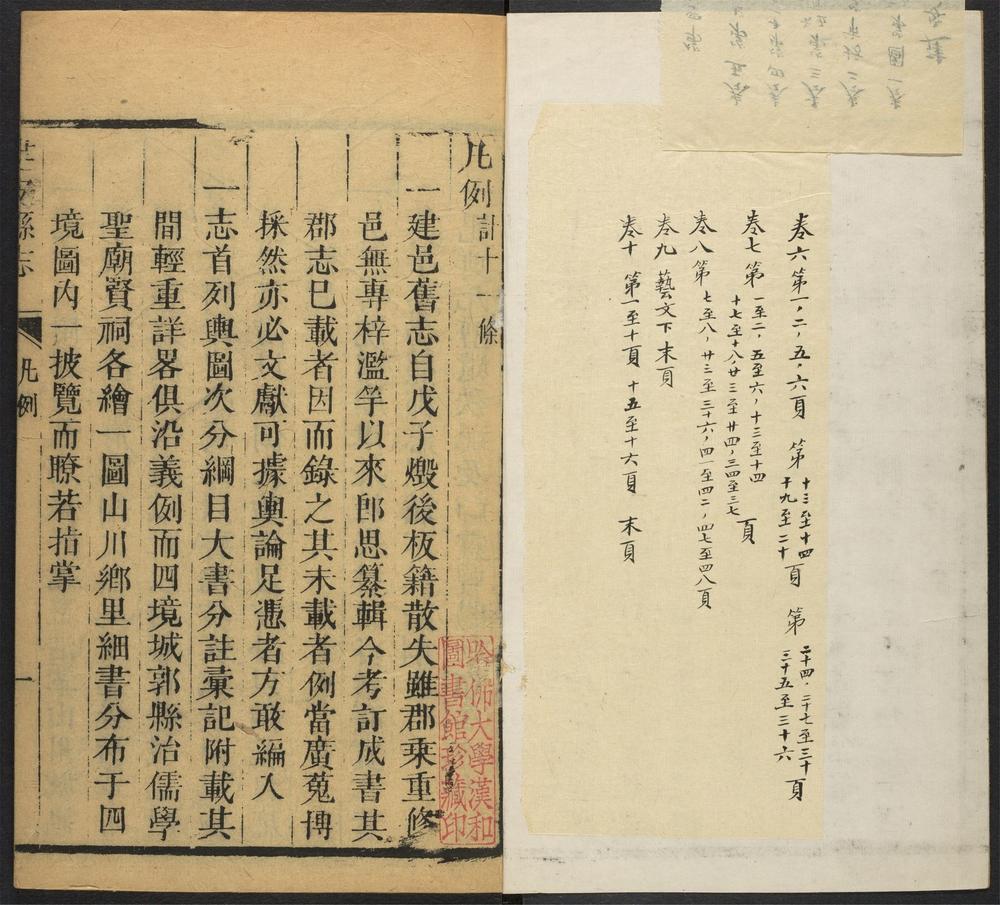 卷六 第一，二，五，六頁 第十三至十四 十九至二十頁 第二十四，二十七至三十頁 三十五至三十六
卷七 第一至二，五至六，十三至十四 十七至十八，廿三至廿四，三四至三七頁
卷八 第七至八，廿三至三十六，四一至四二，四七至四八頁
卷九 藝文下末頁
卷十 第一至十頁 十五至十六頁 末頁
凡例計十一條
一建邑舊志自戊子燬後板籍散失雖郡乘重修
邑無專梓濫竽以來郎思纂輯今考訂成書其
郡志巳載者因而錄之其未載者例當廣蒐博
採然亦必文獻可據輿論足憑者方敢編入
一志首列輿圖次分綱目大書分註彙記附載其
間輕重詳畧俱沿義例而四境城郭縣治儒學
聖廟賢祠各繪一圖山川鄉里細書分布于四
境圖內一披覽而瞭若指掌
縣志
凡例
一
哈佛大學漢和圖書館珍藏印